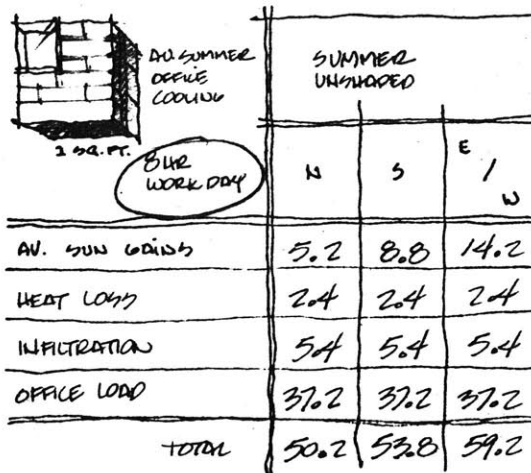 AV. SUMMER
OFFICE
COOLING
1 SQ. FT.
8 HR
WORK DAY
SUMMER
UNSHADED
N S E / W
AV. SUN GAINS 5.2 8.8 14.2
HEAT LOSS 2.4 2.4 2.4
INFILTRATION 5.4 5.4 5.4
OFFICE LOAD 37.2 37.2 37.2
TOTAL 50.2 53.8 59.2